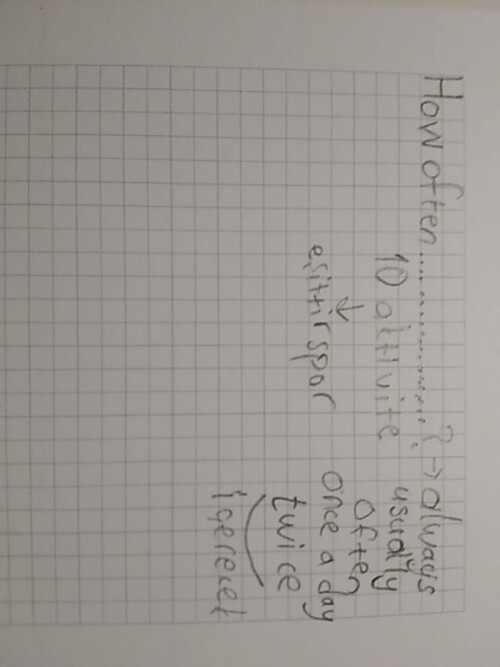 How often ..................? → always
10 aktivite usually
↓ often
eşittir spor once a day
twice
içerecek